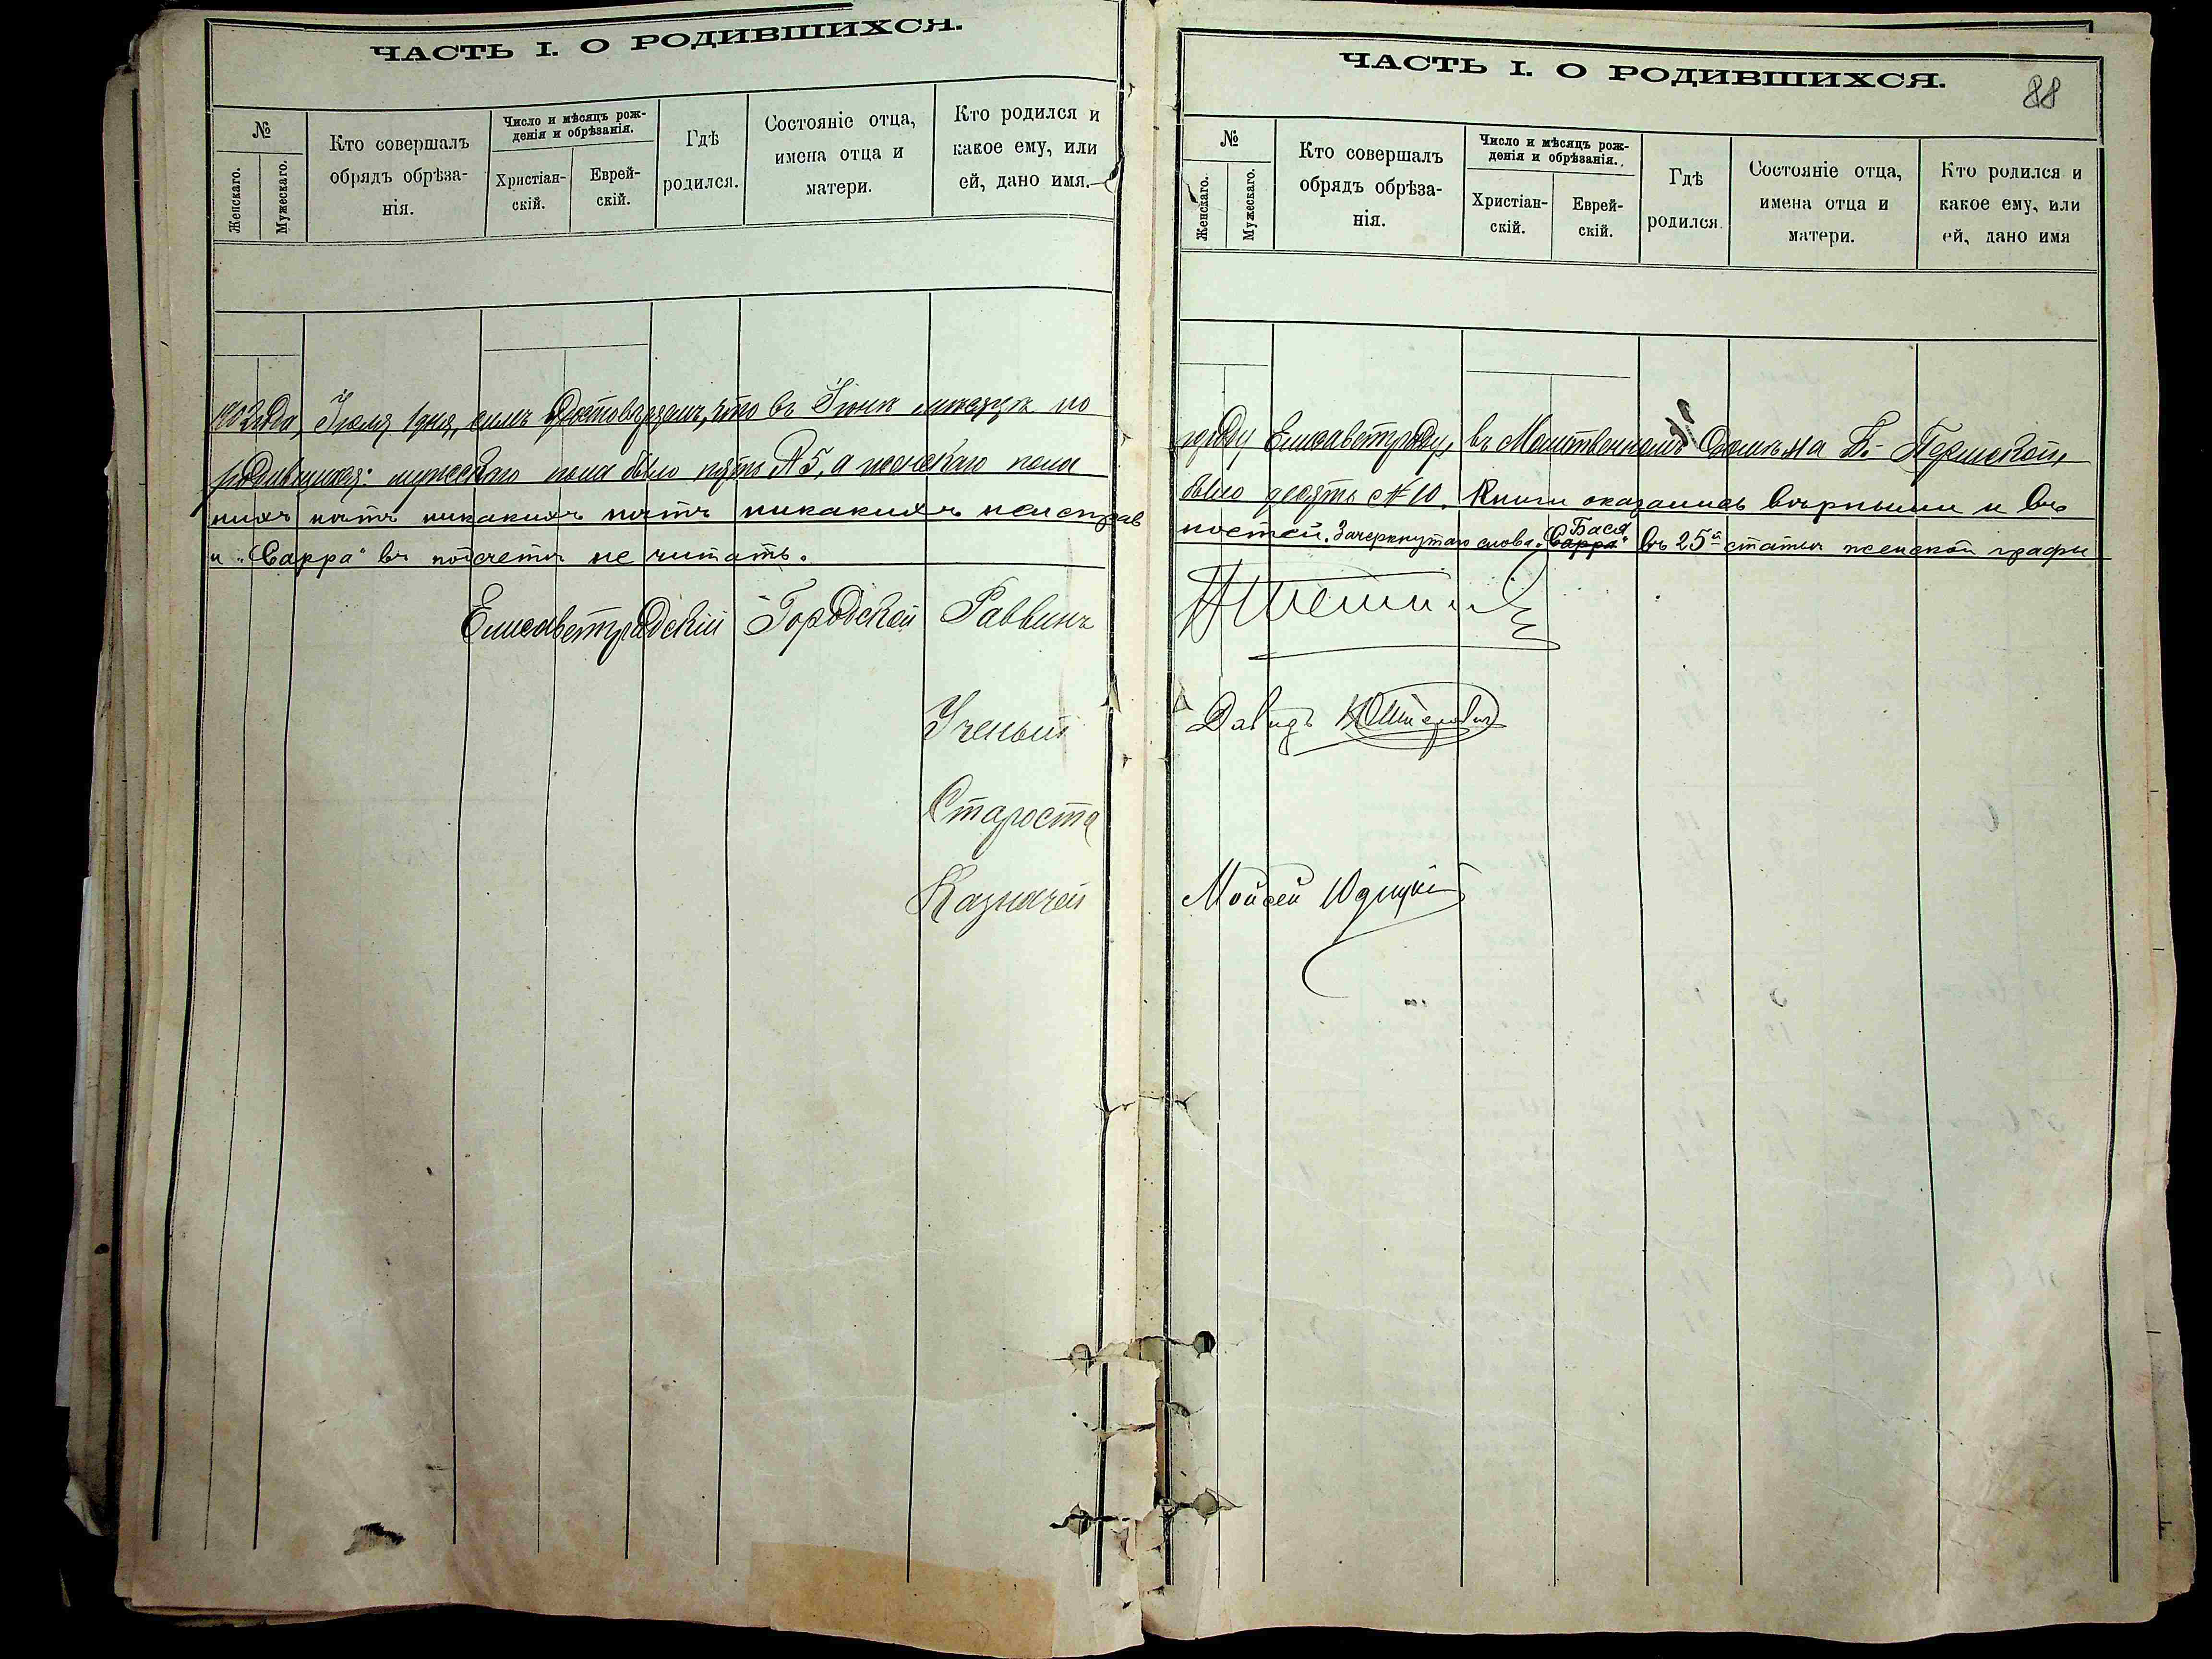 ЧАСТЬ I. О РОДИВШИХСЯ.
№
Женскаго.
Мужескаго.
Кто совершалъ
обрядъ обрѣза-
нія.
Число и мѣсяцъ рож-
денія и обрѣзанія.
Христіан-
скій.
Еврей-
скій.
Гдѣ
родился.
Состояніе отца,
имена отца и
матери.
Кто родился и
какое ему, или
ей, дано имя.
1902 года, Іюля 1 дня, симъ удостовѣряемъ, что въ Іюнѣ мѣсяцѣ по
родившихся: мужескаго пола было пять №5, а женскаго пола
нихъ нѣтъ никакихъ нѣтъ никакихъ неисправ
и „Сарра" въ подсчетъ не читать.
Елисаветградскій Городской Раввинъ
Ученый
Староста
Казначей
ЧАСТЬ I. О РОДИВШИХСЯ.
88
№
Женскаго.
Мужескаго.
Кто совершалъ
обрядъ обрѣза-
нія.
Число и мѣсяцъ рож-
денія и обрѣзанія.
Христіан-
скій.
Еврей-
скій.
Гдѣ
родился.
Состояніе отца,
имена отца и
матери.
Кто родился и
какое ему, или
ей, дано имя
городу Елисаветграду, въ Молитвенномъ Домѣ на Б.- Пермской,
было десять №10. Книги оказались вѣрными и въ
ностей. Зачеркнутаго слова „Сарра" Бася въ 25й статьѣ женской графы
Давидъ
Мойсей Юдицкій